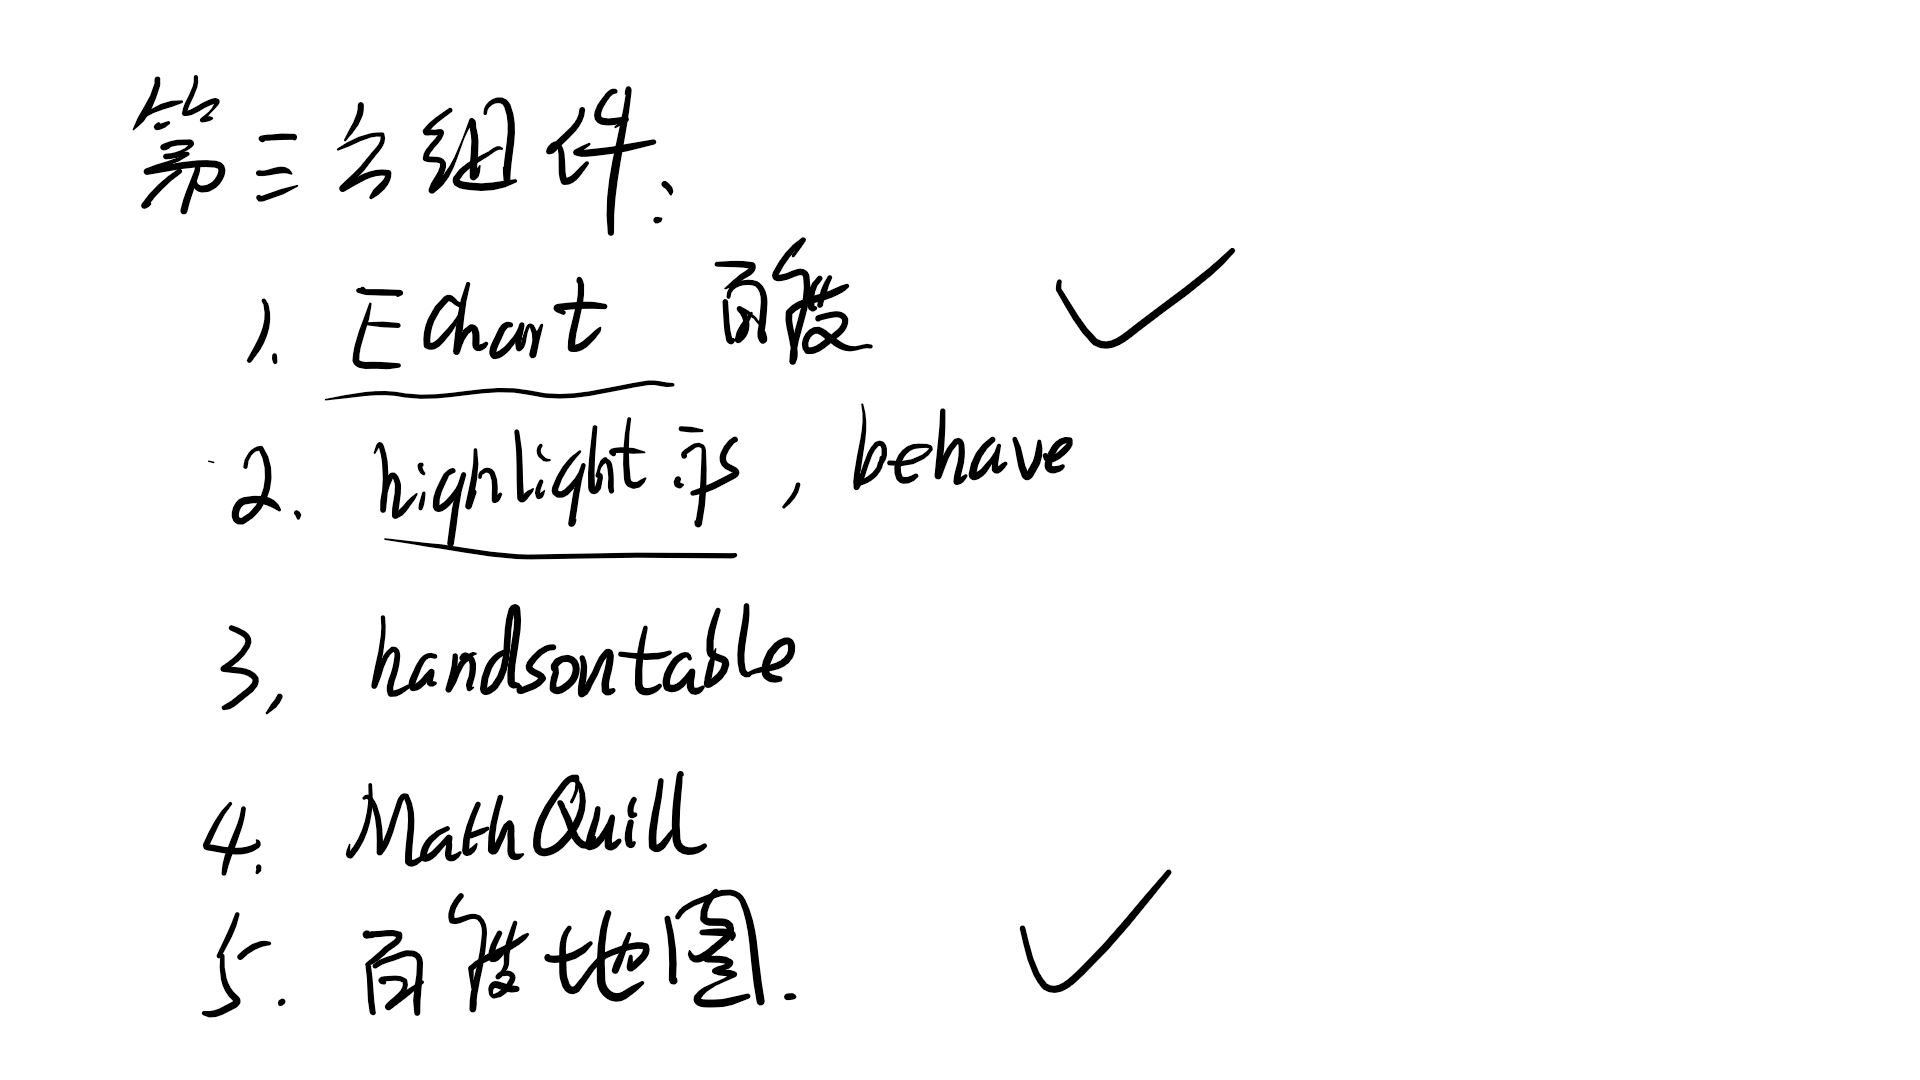 第三方组件:
1. EChart 百度 ✓
2. highlight.js, behave
3, handsontable
4. MathQuill
5. 百度地图. ✓